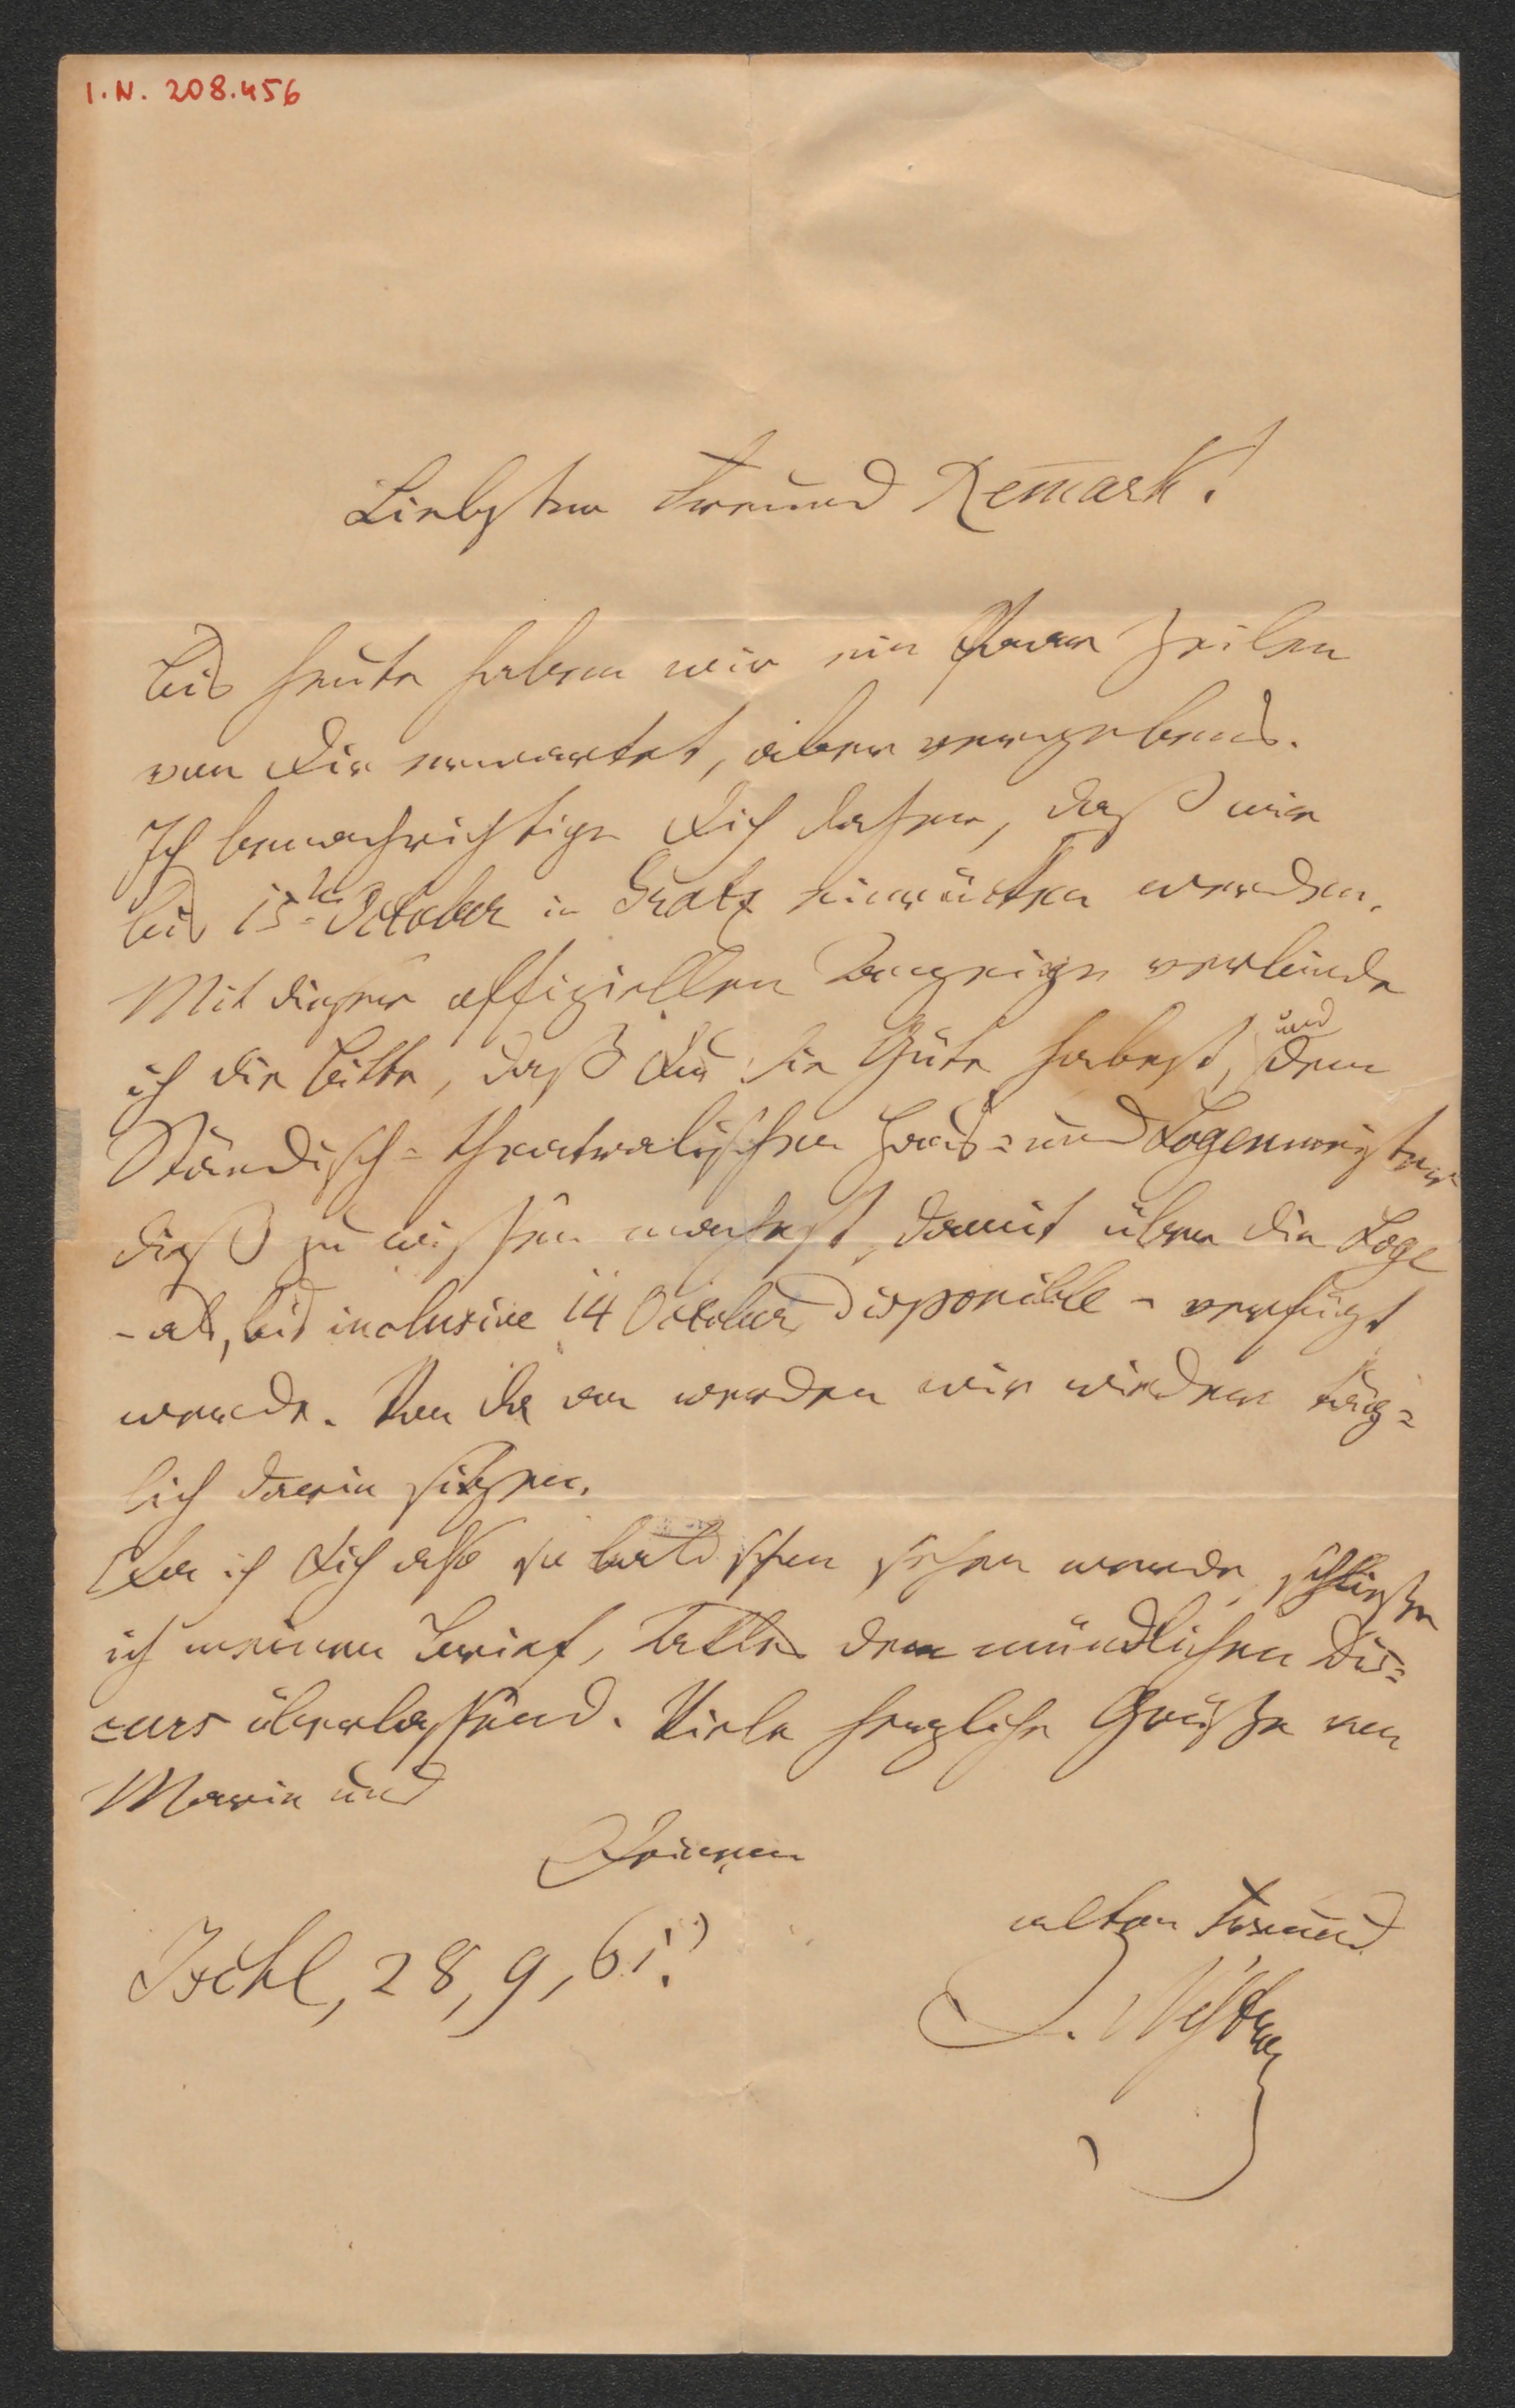 I.N. 208.456
Liebster Freund Remark!
Bis heute haben wir ein Paar Zeilen
von Dir erwartet, aber vergebens.
Ich benachrichtige Dich daher, daß wir
bis 15ten October in Gratz einrücken werden.
Mit dieser offiziellen Anzeige verbinde
ich die Bitte, daß Du die Güte habest, und dem
Ständisch=theatralischen Haus= und Logenmeister
dieß zu wissen machest, damit über die Loge
– als, bis inclusive 14 October disponible – verfügt
werde. Von da an werden wir wieder täg=
lich darin sitzen.
Da ich Dich also so bald schon sehen werde, schließe
ich meinen Brief, Alles dem mündlichen Dis=
curs überlassend. Viele herzliche Grüße von
Marie und
Deinem
alten Freund
Ischl, 28, 9, 61.
J. Nestroy